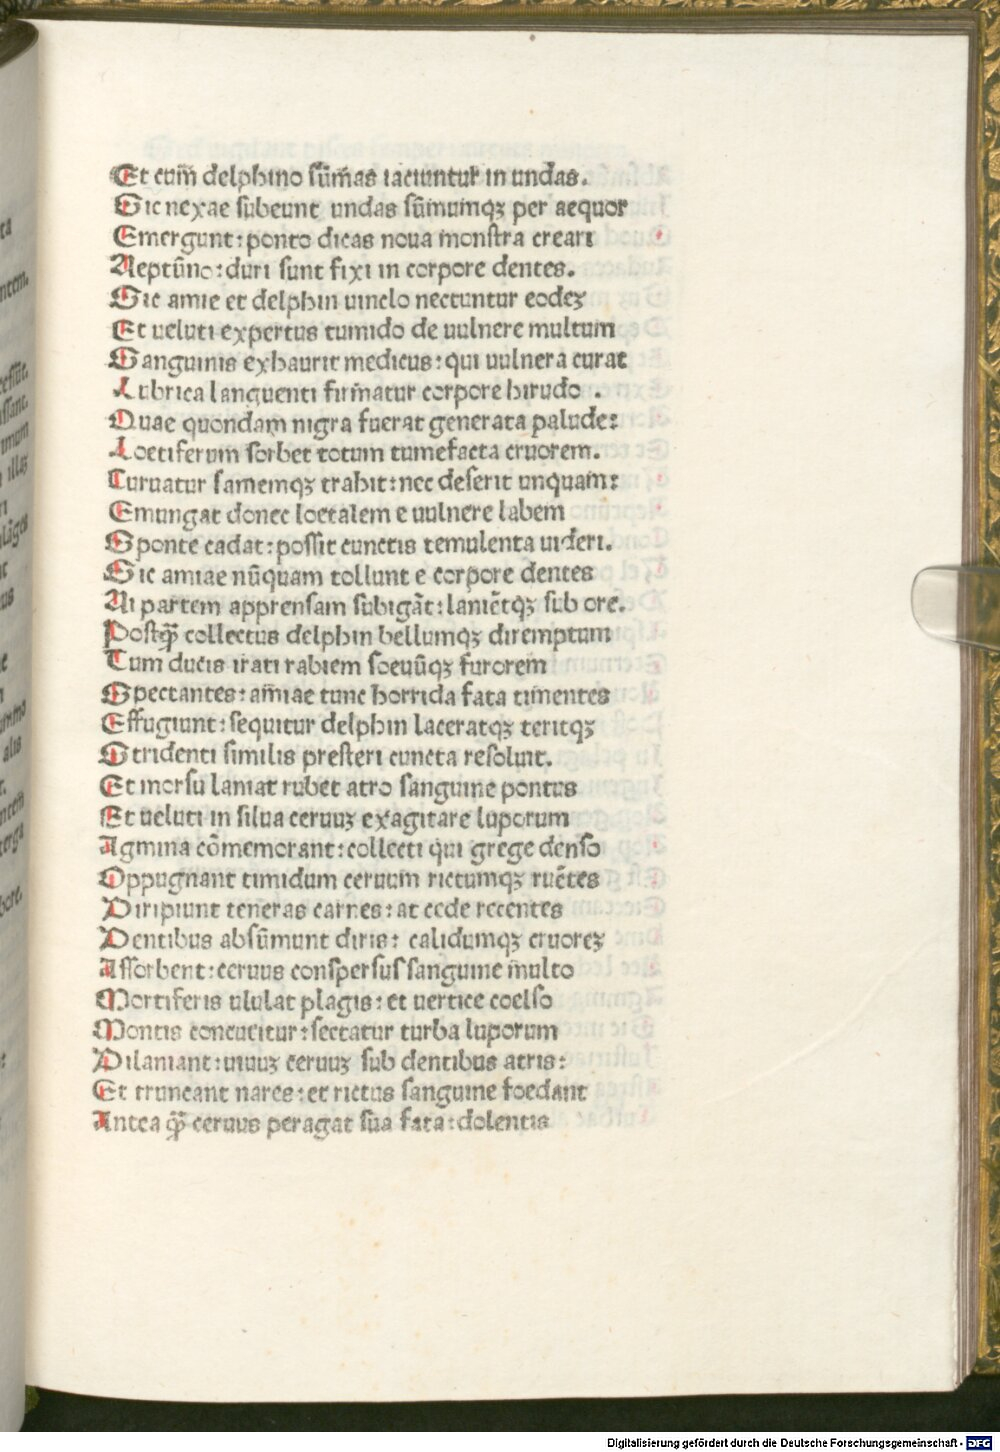 Et cum̄ delphino sum̄as iaciuntur in undas.
Sic nexae subeunt undas sūmumqꝫ per aequor
Emergunt: ponto dicas noua monstra creari
Neptūno: duri sunt fixi in corpore dentes.
Sic amie et delphin uinclo nectuntur eodeꝫ
Et ueluti expertus tumido de uulnere multum
Sanguinis exhaurit medicus: qui uulnera curat
Lubrica languenti firmatur corpore hirudo .
Quae quondam nigra fuerat generata palude:
Loetiferum sorbet totum tumefacta cruorem.
Curuatur famemqꝫ trahit: nec deserit unquam:
Emungat donec loetalem e uulnere labem
Sponte cadat: possit cunctis temulenta uideri.
Sic amiae nūquam tollunt e corpore dentes
Ni partem apprensam subigāt: laniētqꝫ sub ore.
Postꝙ̄ collectus delphin bellumqꝫ diremptum
Tum ducis irati rabiem soeuūqꝫ furorem
Spectantes: amiae tunc horrida fata timentes
Effugiunt: sequitur delphin laceratqꝫ teritqꝫ
Stridenti similis presteri cuncta resoluit.
Et morsu laniat rubet atro sanguine pontus
Et ueluti in silua ceruuꝫ exagitare luporum
Agmina cōmemorant: collecti qui grege denso
Oppugnant timidum ceruum rictumqꝫ ruētes
Diripiunt teneras carnes: at cede recentes
Dentibus absūmunt diris: calidumqꝫ cruoreꝫ
Assorbent: ceruus conspersus sanguine multo
Mortiferis ululat plagis: et uertice coelso
Montis concutitur: sectatur turba luporum
Dilaniant: uiuuꝫ ceruuꝫ sub dentibus atris:
Et truncant nares: et rictus sanguine foedant
Antea ꝙ̄ ceruus peragat sua fata: dolentis
ta
ntem.
Digitalisierung gefördert durch die Deutsche Forschungsgemeinschaft - DFG